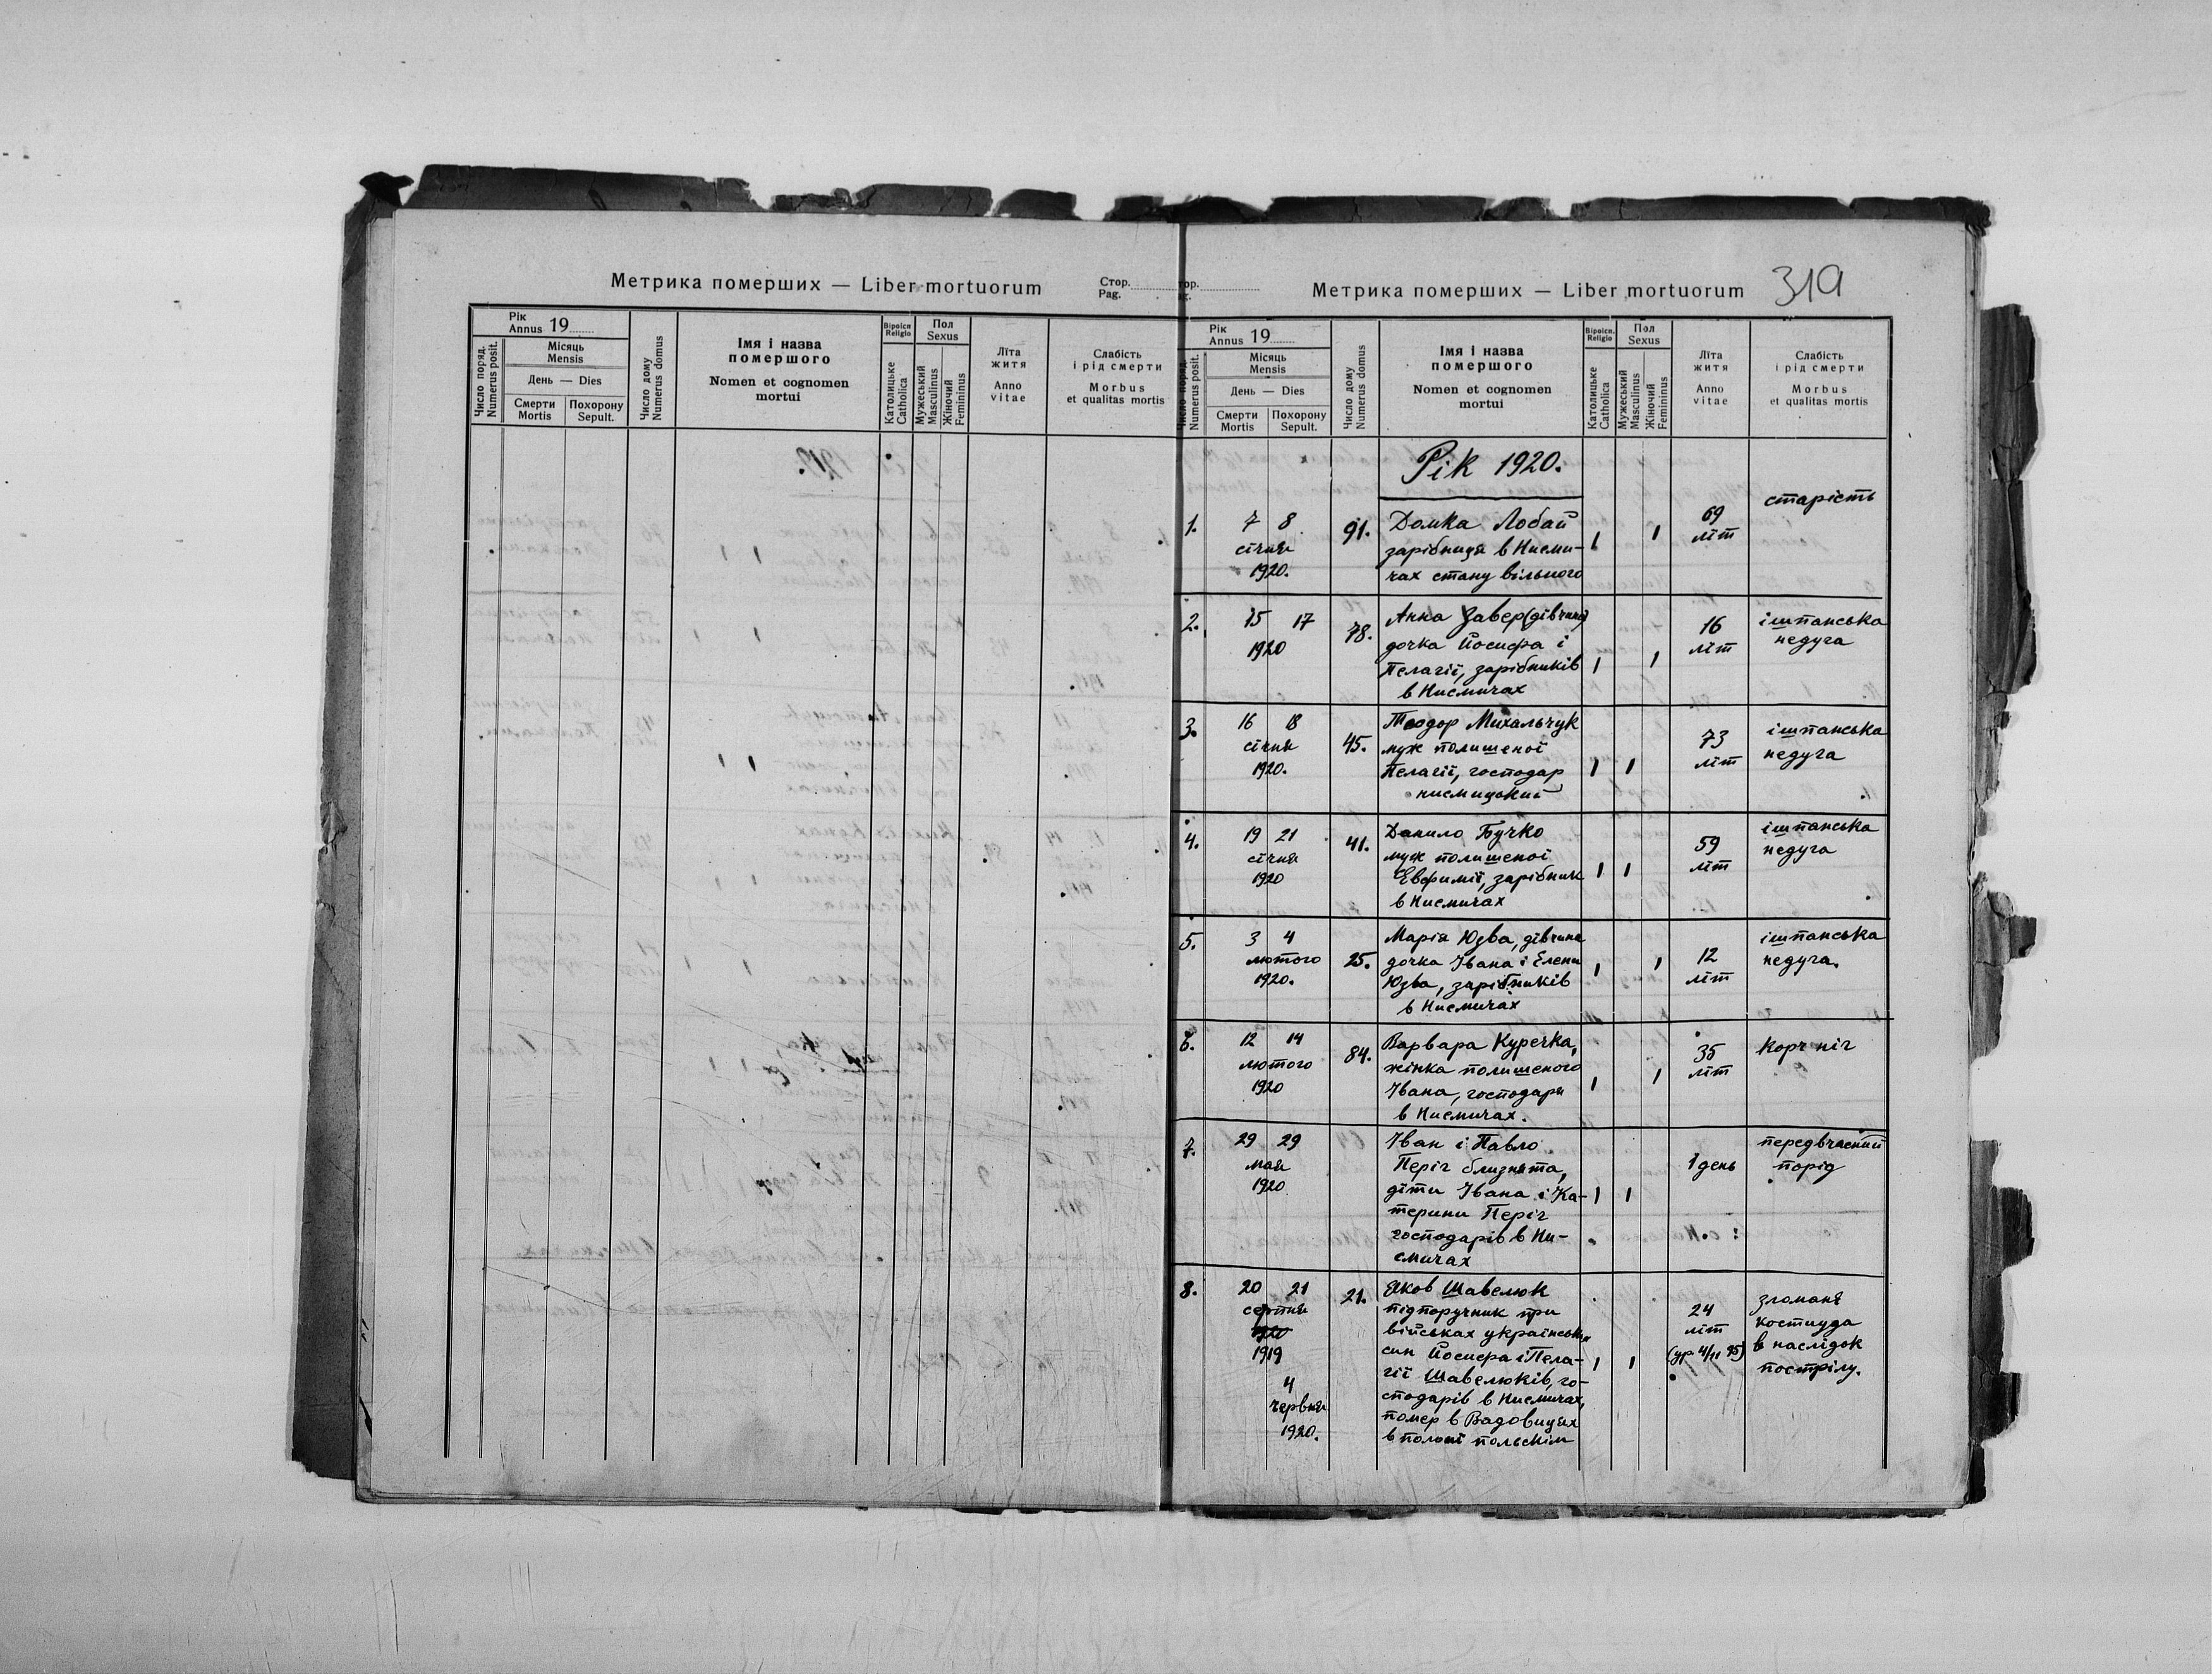 Метрика померших — Liber mortuorum
Стор.
Pag.
Рік
Annus 19
Число поряд.
Numerus posit.
Місяць
Mensis
День — Dies
Смерти
Mortis
Похорону
Sepult.
Число дому
Numerus domus
Імя і назва
помершого
Nomen et cognomen
mortui
Віроісп.
Religio
Католицьке
Catholica
Пол
Sexus
Мужеський
Masculinus
Жіночий
Femininus
Літа
життя
Anno
vitae
Слабість
і рід смерти
Morbus
et qualitas mortis
тор.
g.
Метрика померших — Liber mortuorum
319
Рік
Annus 19
Число поряд.
Numerus posit.
Місяць
Mensis
День — Dies
Смерти
Mortis
Похорону
Sepult.
Число дому
Numerus domus
Імя і назва
помершого
Nomen et cognomen
mortui
Віроісп.
Religio
Католицьке
Catholica
Пол
Sexus
Мужеський
Masculinus
Жіночий
Femininus
Літа
життя
Anno
vitae
Слабість
і рід смерти
Morbus
et qualitas mortis
Рік 1920.
1.
7 8
січня
1920.
91.
Домка Лобай
зарібниця в Нисми-
чах стану вільного
69
літ
старість
2.
15 17
1920
78.
Анна Завер (дівчина)
дочка Йосифа і
Пелагії, зарібників
в Нисмичах
16
літ
ішпанська
недуга
3.
16 18
січня
1920.
45.
Теодор Михальчук
муж полишеної
Пелагії, господар
нисмицький
73
літ
ішпанська
недуга
4.
19 21
січня
1920
41.
Данило Бучко
муж полишеної
Евфимії, зарібник
в Нисмичах
59
літ
ішпанська
недуга
5.
3 4
лютого
1920.
25.
Марія Юзва, дівчина
дочка Івана і Елени
Юзва, зарібників
в Нисмичах
12
літ
ішпанська
недуга.
6.
12 14
лютого
1920
84.
Варвара Куречка,
жінка полишеного
Івана, господаря
в Нисмичах.
35
літ
корч ніг
7.
29 29
мая
1920
Іван і Павло
Періг близнята,
діти Івана і Ка-
терини Періг
господарів в Ни-
смичах
1 день
передвчасний
порід
8.
20 21
серпня
1920
1919
4
червня
1920.
21.
Яков Шавелюк
підпоручник при
військах українських
син Йосифа і Пела-
гії Шавелюків, го-
сподарів в Нисмичах,
помер в Вадовицях
в полоні польскім
24
літ
(ур 4/11 95)
зломанє
костиуда
в наслідок
пострілу.